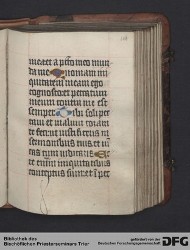 mea et a pctō meo mun
da me Quoniam ini
quitatem meam ego
cognosco et peccatum
meum contra me est
semper Tibi soli pec
cavi et malum coram
te feci ut iustificeris in
sermonibus tuis et vin
cas cum iudicaris Ec
ce enim in iniquitatibus
conceptus sum et in pec
Bibliothek des
Bischöflichen Priesterseminars Trier
gefördert von der
Deutschen Forschungsgemeinschaft
DFG